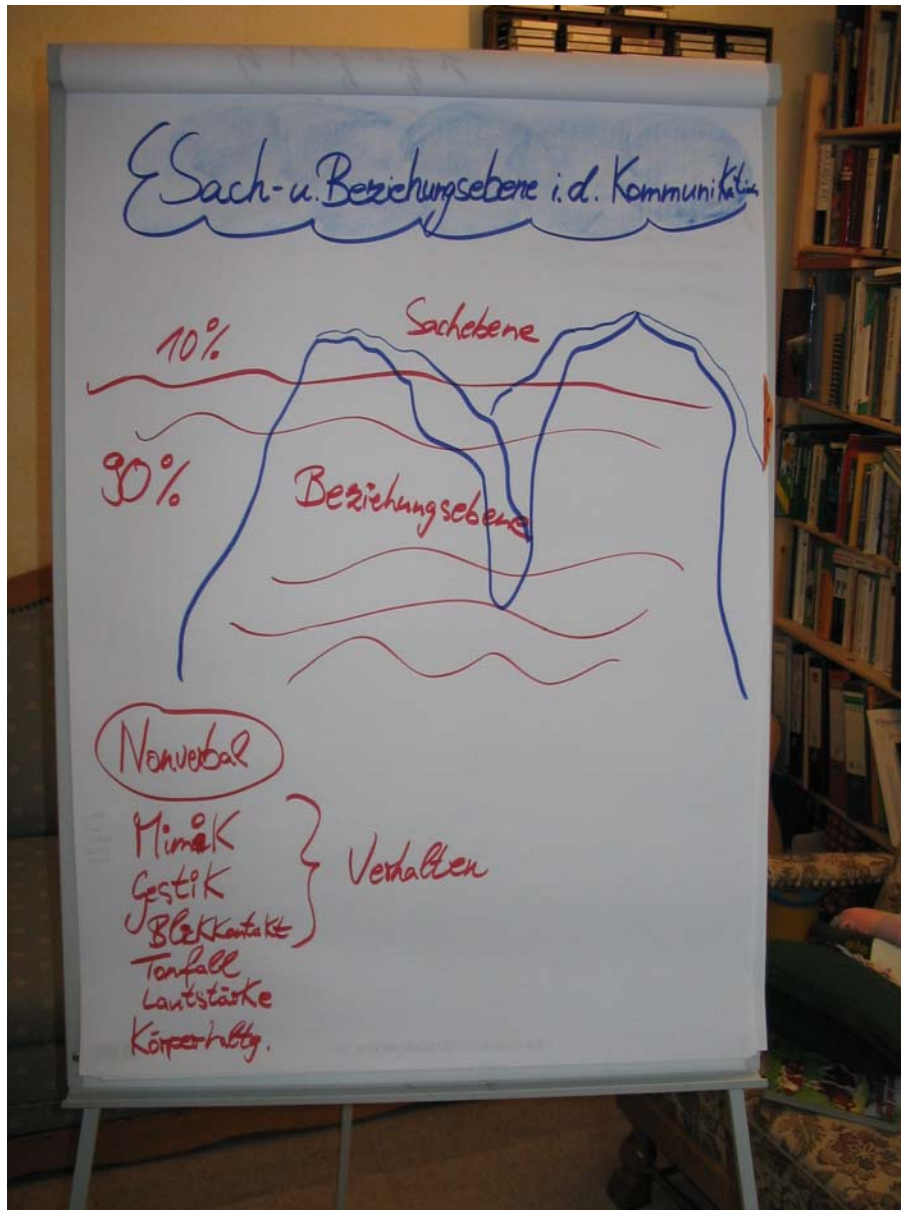 Sach- u. Beziehungsebene i.d. Kommunikation
10% Sachebene
90% Beziehungsebene
Nonverbal
Mimik
Gestik
Blickkontakt
Verhalten
Tonfall
Lautstärke
Körperhaltg.